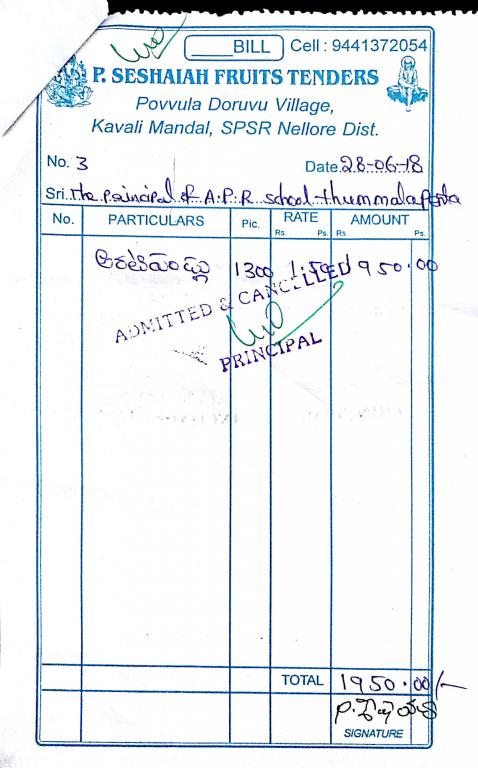 BILL Cell : 9441372054
P. SESHAIAH FRUITS TENDERS
Povvula Doruvu Village,
Kavali Mandal, SPSR Nellore Dist.
No. 3 Date 28-06-18
Sri. The principal of A.P.R school thummalapenta
No. PARTICULARS Pic. RATE AMOUNT
Rs. Ps. Rs. Ps.
అరటిపండ్లు 1300 1.50 1950.00
ADMITTED & CANCELLED
PRINCIPAL
TOTAL 1950.00/-
SIGNATURE